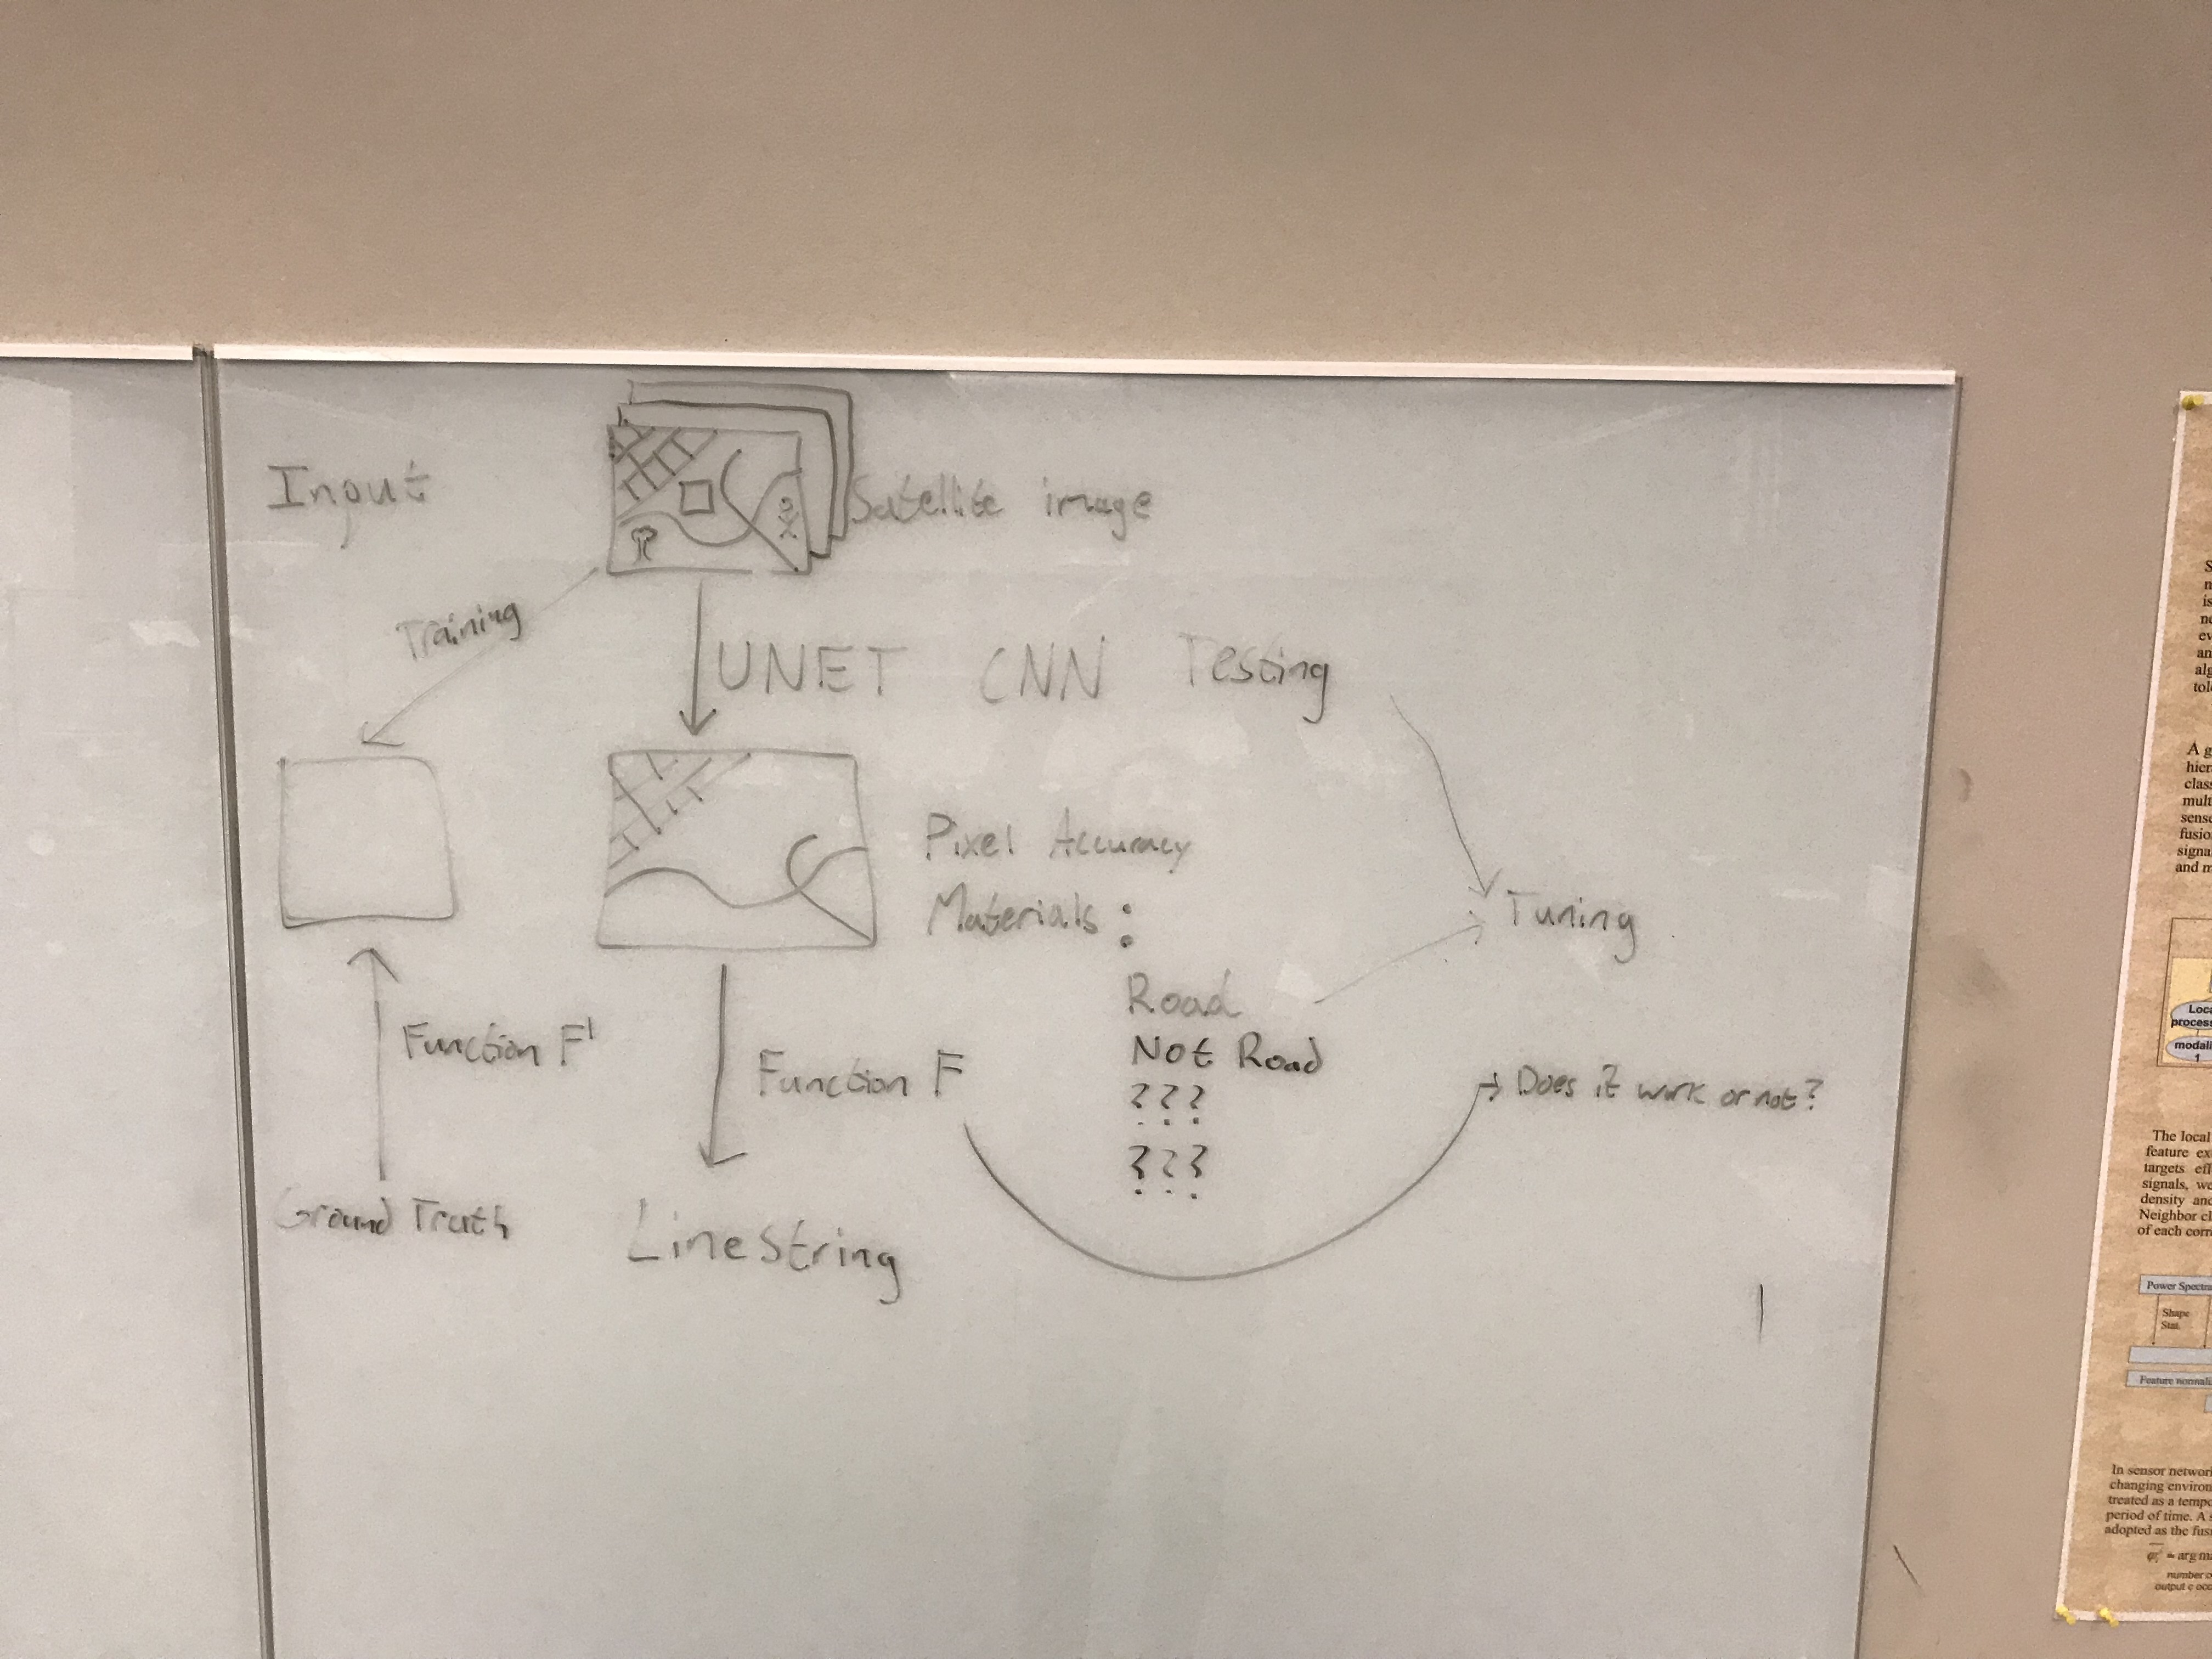 Input
Satellite image
Training
UNET CNN Testing
Pixel Accuracy
Materials:
Road
Not Road
???
???
Tuning
Function F'
Function F
Does it work or not?
Ground Truth
LineString
A g
hier
class
mult
sense
fusio
signa
and m
Loca
process
modali
1
The local
feature ex
targets eff
signals, we
density and
Neighbor cl
of each corre
Power Spectru
Shape
Stat.
Feature normali
In sensor network
changing environ
treated as a tempo
period of time. A s
adopted as the fus
= arg ma
number o
output c occ